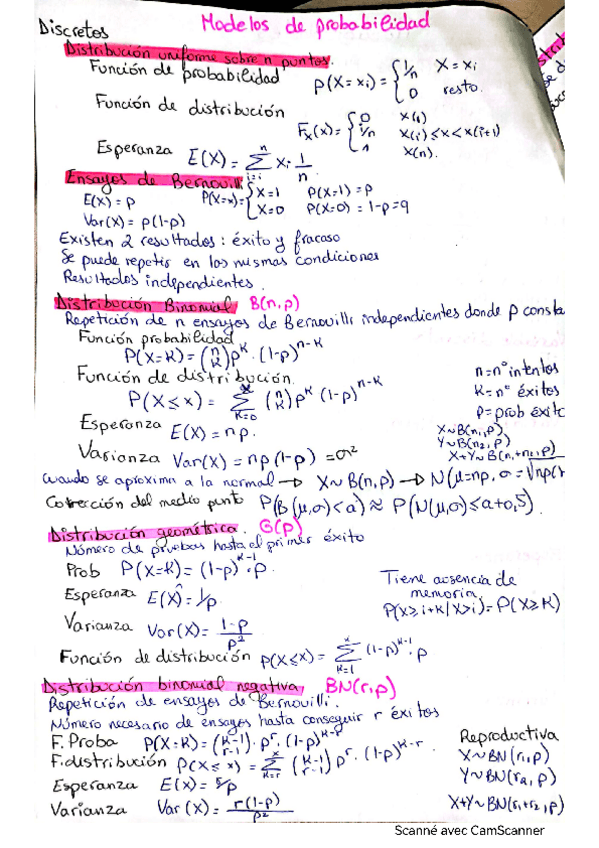 Modelos de probabilidad
Discretos
Distribución uniforme sobre n puntos.
Función de probabilidad P(X=xi) = { 1/n X=xi
0 resto.
Función de distribución
Fx(x) = { 0 x(1)
i/n x(i) ≤ x < x(i+1)
1 x(n).
Esperanza E(X) = Σ xi 1/n
Ensayos de Bernouilli
E(X) = p P(X=x) = { X=1 P(X=1) = p
X=0 P(X=0) = 1-p = q
Var(X) = p(1-p)
Existen 2 resultados: éxito y fracaso
Se puede repetir en las mismas condiciones
Resultados independientes.
Distribución Binomial B(n,p)
Repetición de n ensayos de Bernouilli independientes donde p consta
Función probabilidad
P(X=K) = (n K) p^K · (1-p)^n-K
Función de distribución.
P(X≤x) = Σ K=0 (n K) p^K (1-p)^n-K
n = nº intentos
K = nº éxitos
p = prob éxito
Esperanza E(X) = np.
X~B(n1,p)
Y~B(n2,p)
X+Y~B(n1+n2,p)
Varianza Var(X) = np(1-p) = σ²
cuando se aproxima a la normal → X~B(n,p) → N(μ=np, σ=√np(1
Corrección del medio punto P(B(μ,σ)<a) ≈ P(N(μ,σ)≤a+0,5).
Distribución geométrica. G(p)
Número de pruebas hasta el primer éxito
Prob P(X=K) = (1-p)^K-1 · p.
Esperanza E(X) = 1/p
Tiene ausencia de
memoria
P(X≥i+K/X>i) = P(X≥K)
Varianza Var(X) = 1-p/p²
Función de distribución P(X≤x) = Σ K=1 (1-p)^K-1 · p
Distribución binomial negativa, BN(r,p)
Repetición de ensayos de Bernouilli.
Número necesario de ensayos hasta conseguir r éxitos
F. Proba P(X=K) = (K-1 r-1) · p^r · (1-p)^K-r
F. distribución P(X≤x) = Σ K=r (K-1 r-1) p^r · (1-p)^K-r
Esperanza E(X) = r/p
Varianza Var(X) = r(1-p)/p²
Reproductiva
X~BN(r1,p)
Y~BN(r2,p)
X+Y~BN(r1+r2,p)
Scanné avec CamScanner